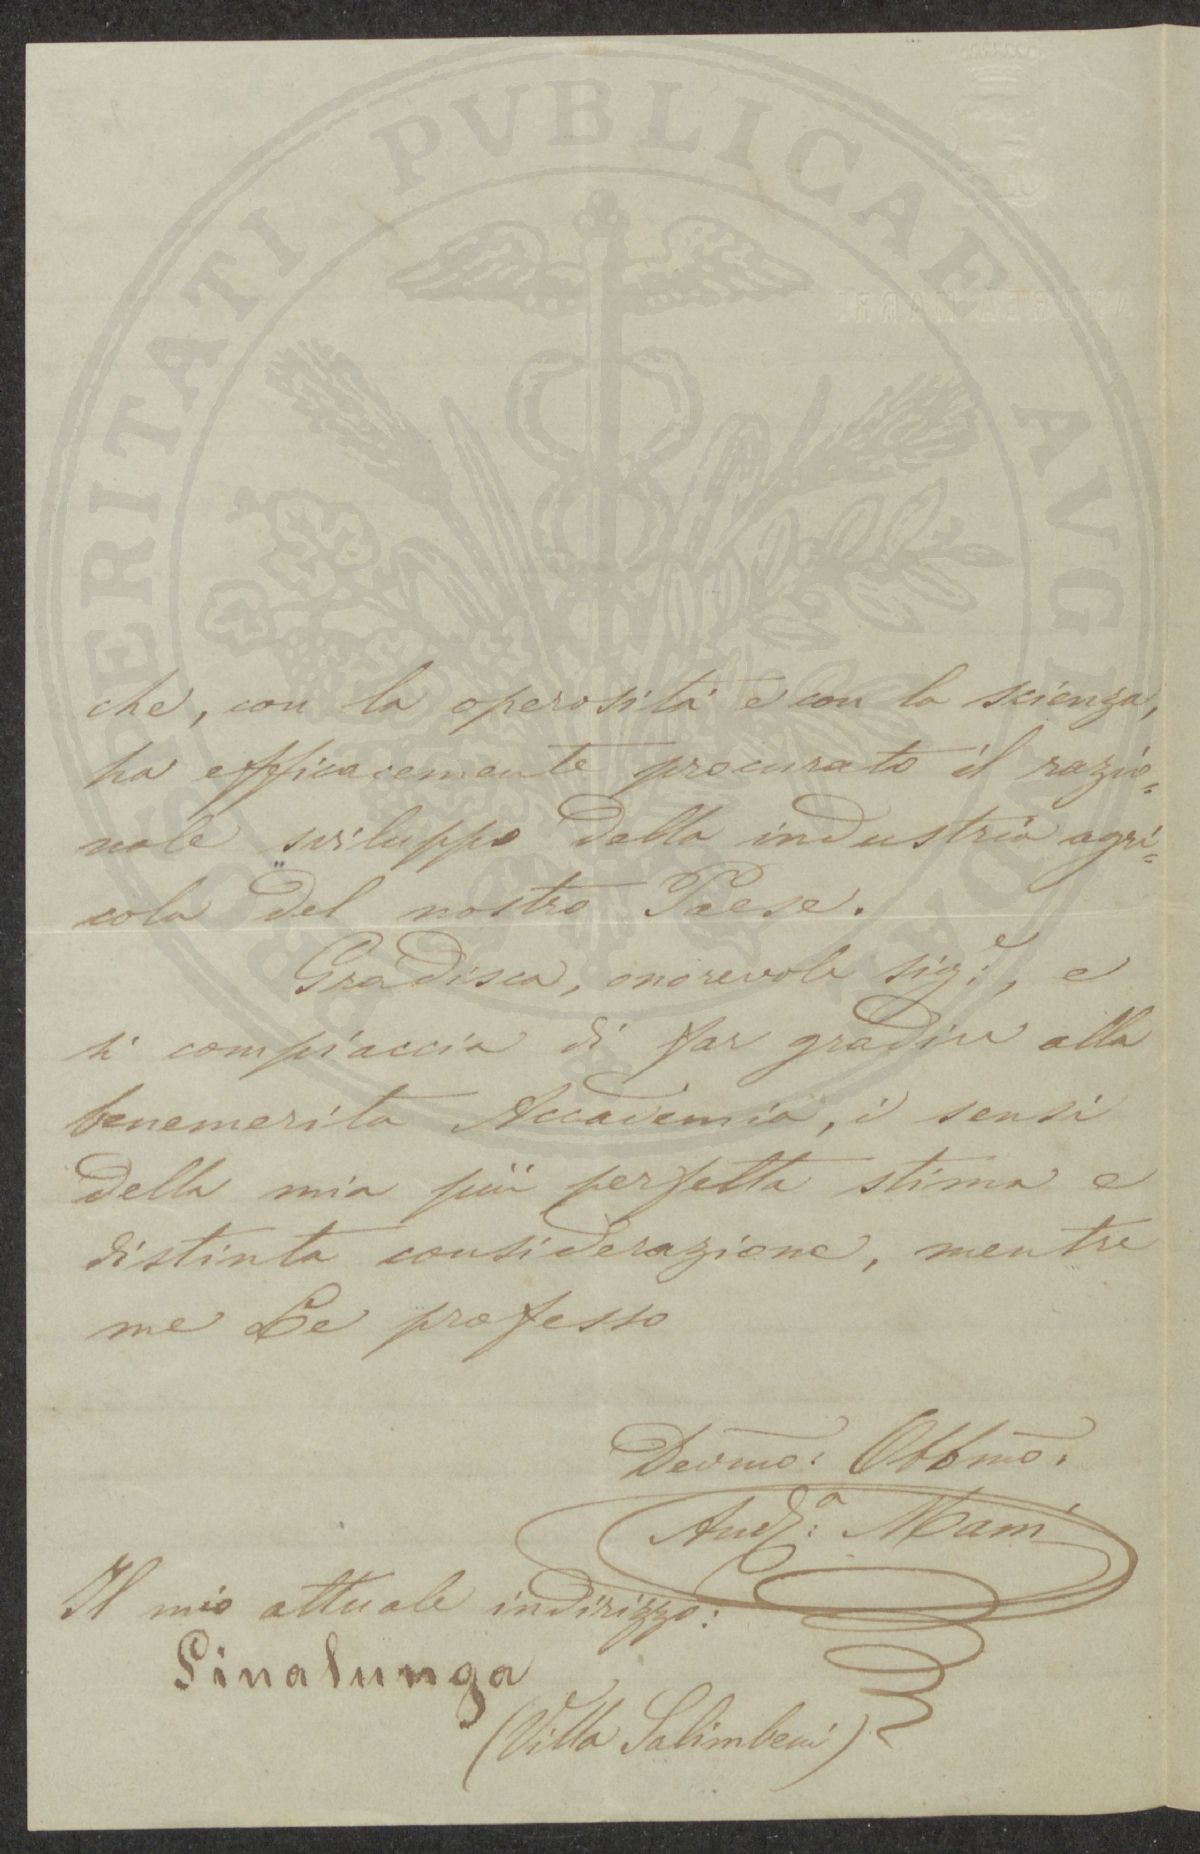 PROSPERITATI PVBLICAE AVGENDAE
che, con la operosità e con la scienza,
ha efficacemente procurato il razio=
nale sviluppo della industria agri=
cola del nostro Paese.
Gradisca, onorevole sig.e, e
si compiaccia di far gradire alla
benemerita Accademia, i sensi
della mia più perfetta stima e
distinta considerazione, mentre
me Le professo
Devmo: Obbmo.
And.a
Il mio attuale indirizzo:
Sinalunga
(Villa Salimbeni)